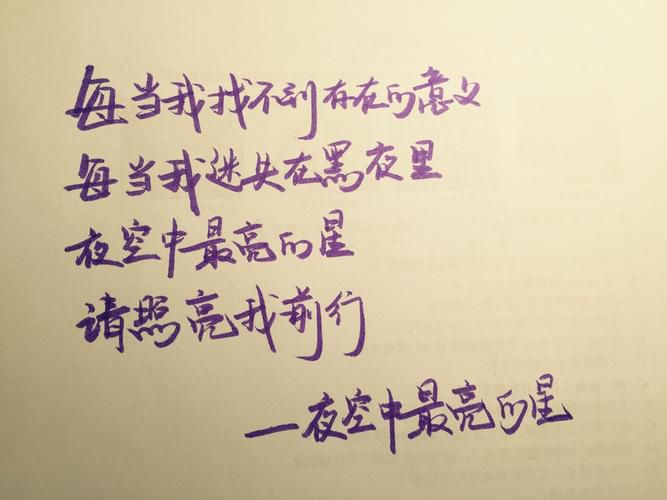 每当我找不到存在的意义
每当我迷失在黑夜里
夜空中最亮的星
请照亮我前行
—夜空中最亮的星